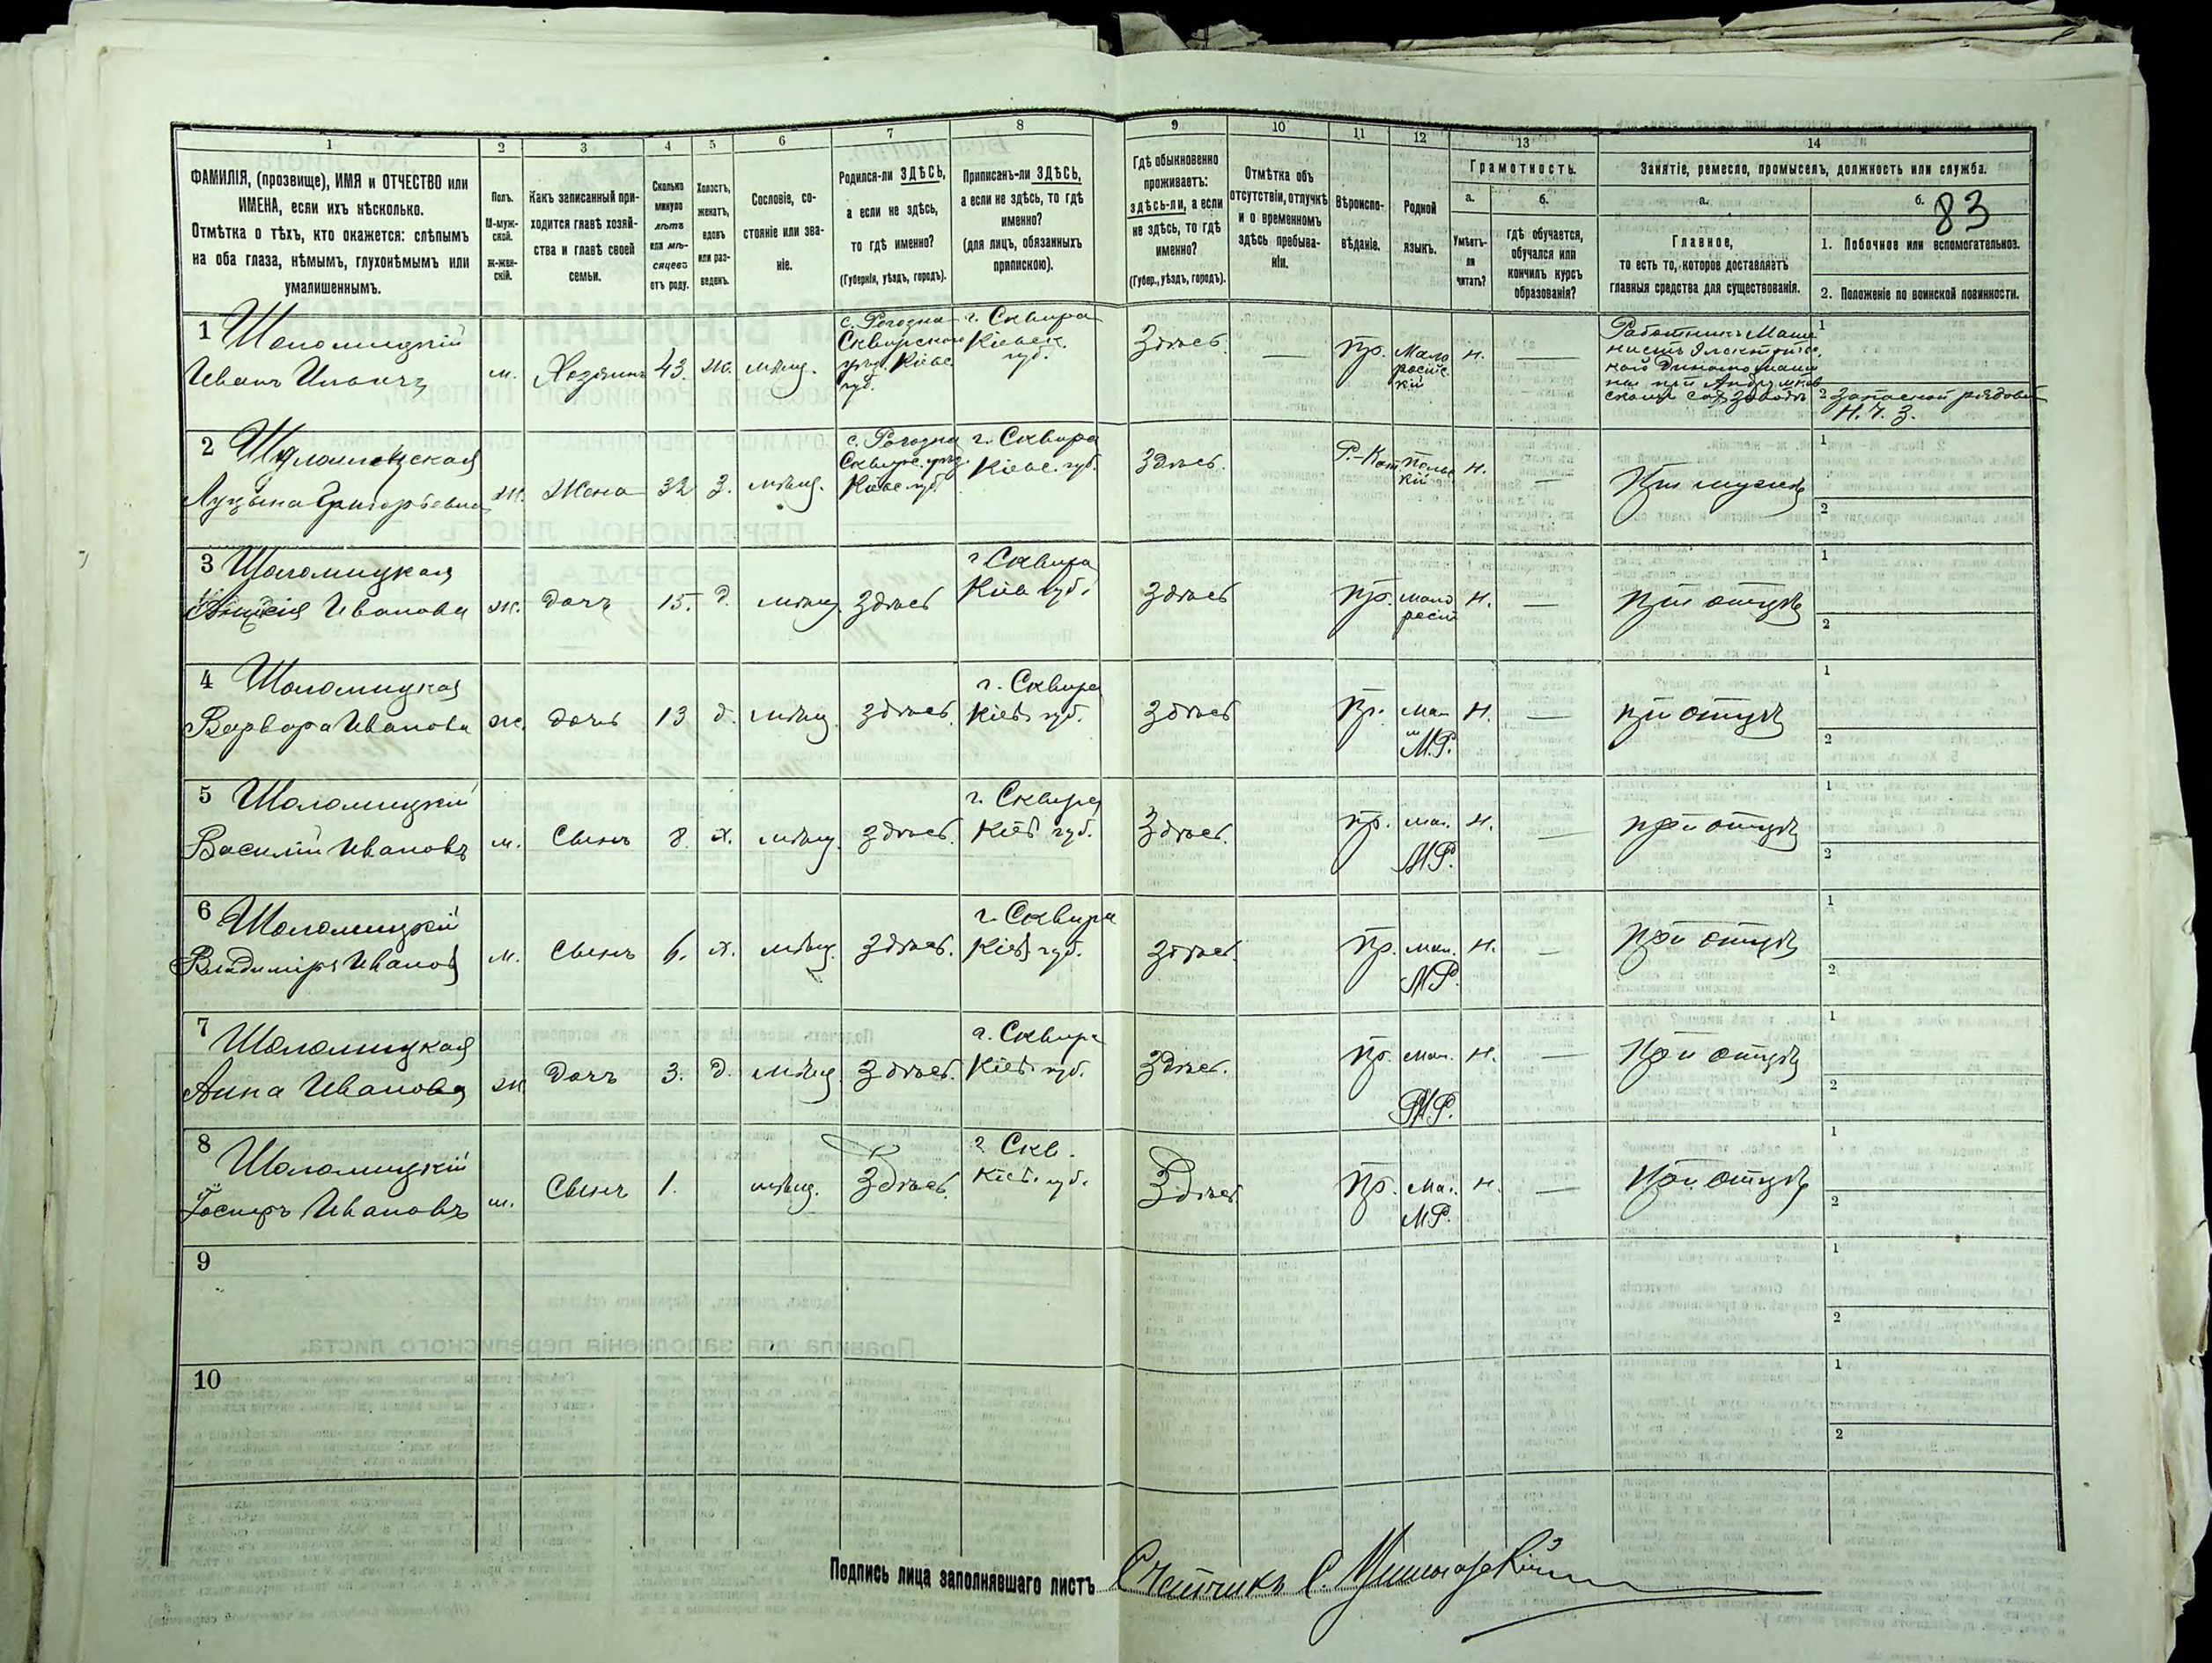 1 2 3 4 5 6 7 8 9 10 11 12 13 14
ФАМИЛІЯ, (прозвище), ИМЯ и ОТЧЕСТВО или
ИМЕНА, если ихъ нѣсколько.
Отмѣтка о тѣхъ, кто окажется: слѣпымъ
на оба глаза, нѣмымъ, глухонѣмымъ или
умалишеннымъ.
Полъ.
М-муж-
ской.
ж-жен-
скій.
Какъ записанный при-
ходится главѣ хозяй-
ства и главѣ своей
семьи.
Сколько
минуло
лѣтъ
или мѣ-
сяцевъ
отъ роду.
Холостъ,
женатъ,
вдовъ
или раз-
веденъ.
Сословіе, со-
стояніе или зва-
ніе.
Родился-ли ЗДѢСЬ,
а если не здѣсь,
то гдѣ именно?
(Губернія, уѣздъ, городъ).
Приписанъ-ли ЗДѢСЬ,
а если не здѣсь, то гдѣ
именно?
(для лицъ, обязанныхъ
припискою).
Гдѣ обыкновенно
проживаетъ:
здѣсь-ли, а если
не здѣсь, то гдѣ
именно?
(Губер., уѣздъ, городъ).
Отмѣтка объ
отсутствіи, отлучкѣ
и о временномъ
здѣсь пребыва-
ніи.
Вѣроиспо-
вѣданіе.
Родной
языкъ.
Грамотность.
а.
Умѣетъ-
ли
читать?
б.
гдѣ обучается,
обучался или
кончилъ курсъ
образованія?
Занятіе, ремесло, промыселъ, должность или служба.
а.
Главное,
то есть то, которое доставляетъ
главныя средства для существованія.
б. 83
1. Побочное или вспомогательное.
2. Положеніе по воинской повинности.
1 Шоломицкій
Иванъ
м. Хозяинъ 43. ж. мѣщ.
Сквирского
уѣзд. Кіевс.
губ.
г. Сквира
Кіевск.
губ.
Здѣсь — пр.
Мало
росій.
кій
н. —
Работникъ Маши
нистъ
1
2 Запасной рядовой
Н. Ч. З.
2
Григорьевна
ж. Жена 32 З. мѣщ.
Сквирс. уѣзд.
Кіевс. губ.
г. Сквира
Кіевс. губ.
Здѣсь Р.-Кат. Польс
кій
н. — При мужѣ
1
2
3 Шоломицкая
Иванова
ж. дочь 15. д. мѣщ. Здѣсь
г. Сквира
Кіев губ.
здѣсь пр. мало
росій
н. — при отцѣ
1
2
4 Шоломицкая
Варвара Иванова
ж. дочь 13 д. мѣщ. здѣсь.
г. Сквира
Кіев. губ.
здѣсь пр. Мал
М.Р.
н. — при отцѣ
1
2
5 Шоломицкій
Василій Ивановъ
м. Сынъ 8 х. мѣщ. здѣсь.
г. Сквира
Кіев. губ.
Здѣсь. пр. мал.
М.Р.
н. — при отцѣ
1
2
6 Шоломицкій
Владиміръ Иванов
м. Сынъ 6. х. мѣщ. здѣсь.
г. Сквира
Кіев. губ.
здѣсь. пр. мал.
М.Р.
н. — при отцѣ
1
2
7 Шоломицкая
Анна Иванова
ж. дочь 3. д. мѣщ. Здѣсь.
г. Сквира
Кіев. губ.
Здѣсь. пр. мал.
М.Р.
н. — При отцѣ
1
2
8 Шоломицкій
Ивановъ
м. Сынъ 1. мѣщ. Здѣсь.
г. Скв.
Кіев. губ.
Здѣсь пр. Мал.
М.Р.
н. — При отцѣ
1
2
9
1
2
10
1
2
Подпись лица заполнявшаго листъ Счетчикъ С.